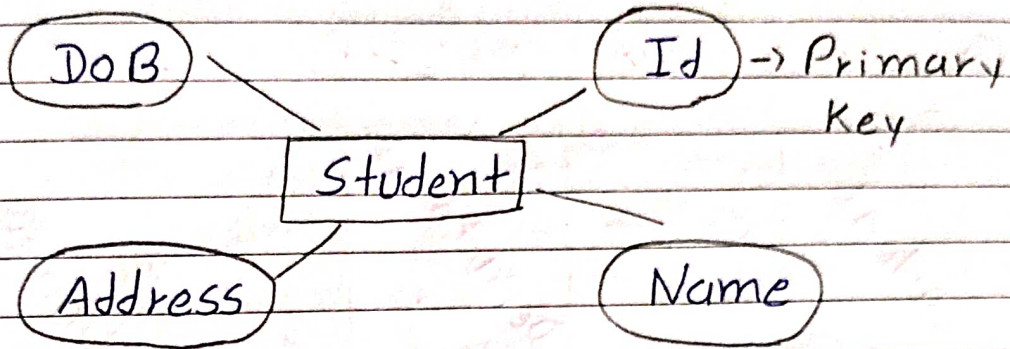 DoB
Id -> Primary
Key
Student
Address
Name